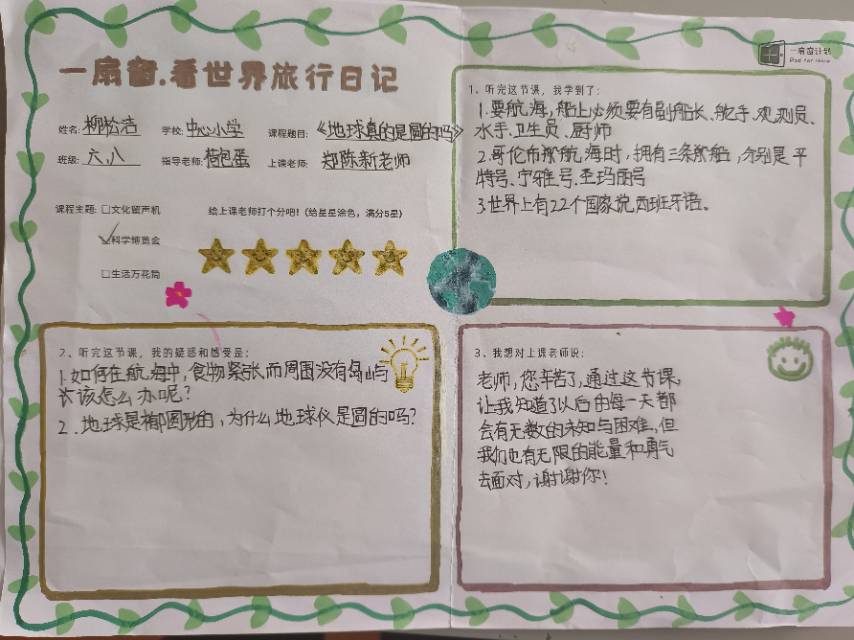 一扇窗.看世界旅行日记
一扇窗计划
Pad for Hope
姓名: 柳松浩 学校: 中心小学 课程题目:《地球真的是圆的吗》
班级: 六.八 指导老师: 荷包蛋 上课老师: 郑陈新老师
课程主题: □文化留声机
√科学博览会
□生活万花筒
给上课老师打个分吧!(给星星涂色,满分5星)
1、听完这节课,我学到了:
1.要航海,船上必须要有副船长、舵手、观测员、
水手、卫生员、厨师
2.哥伦布船航海时,拥有三条船舶,分别是平
特号、宁雅号、圣玛丽号
3.世界上有22个国家说西班牙语。
2、听完这节课,我的疑惑和感受是:
1.如何在航海中,食物紧张,而周围没有岛屿
该怎么办呢?
2.地球是椭圆形的,为什么地球仪是圆的吗?
3、我想对上课老师说:
老师,您辛苦了,通过这节课,
让我知道了以后的每一天都
会有无数的未知与困难,但
我们也有无限的能量和勇气
去面对,谢谢你!